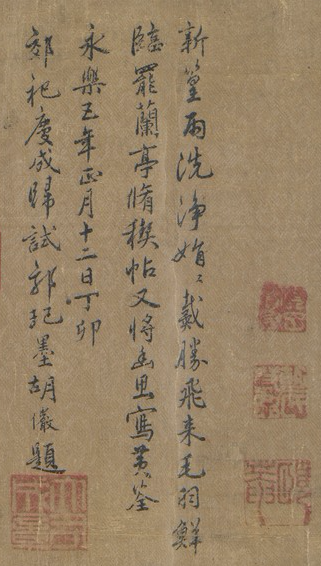 新篁雨洗淨娟〻戴勝飛来毛羽鮮
臨罷蘭亭脩稧帖又将幽思寫黄筌
永樂五年正月十二日丁卯
郊祀慶成歸試郭玘墨胡儼題